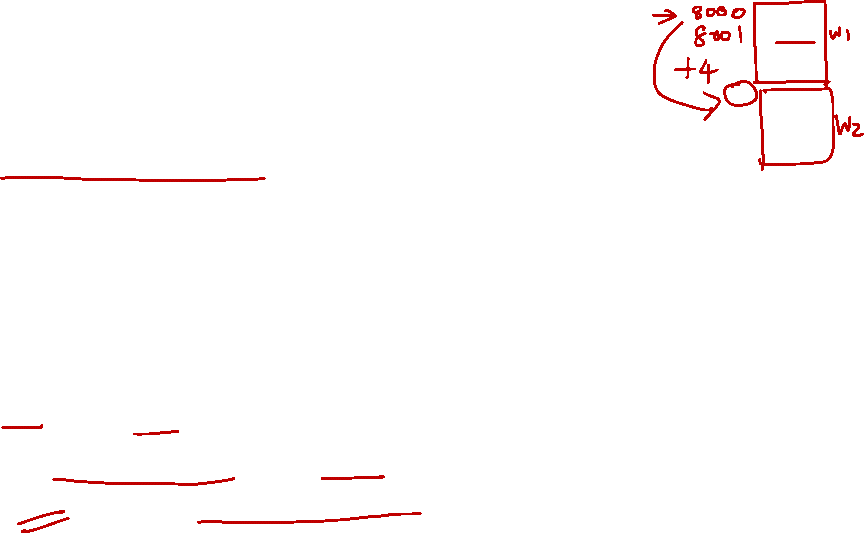 8000
8001
W1
+4
W2